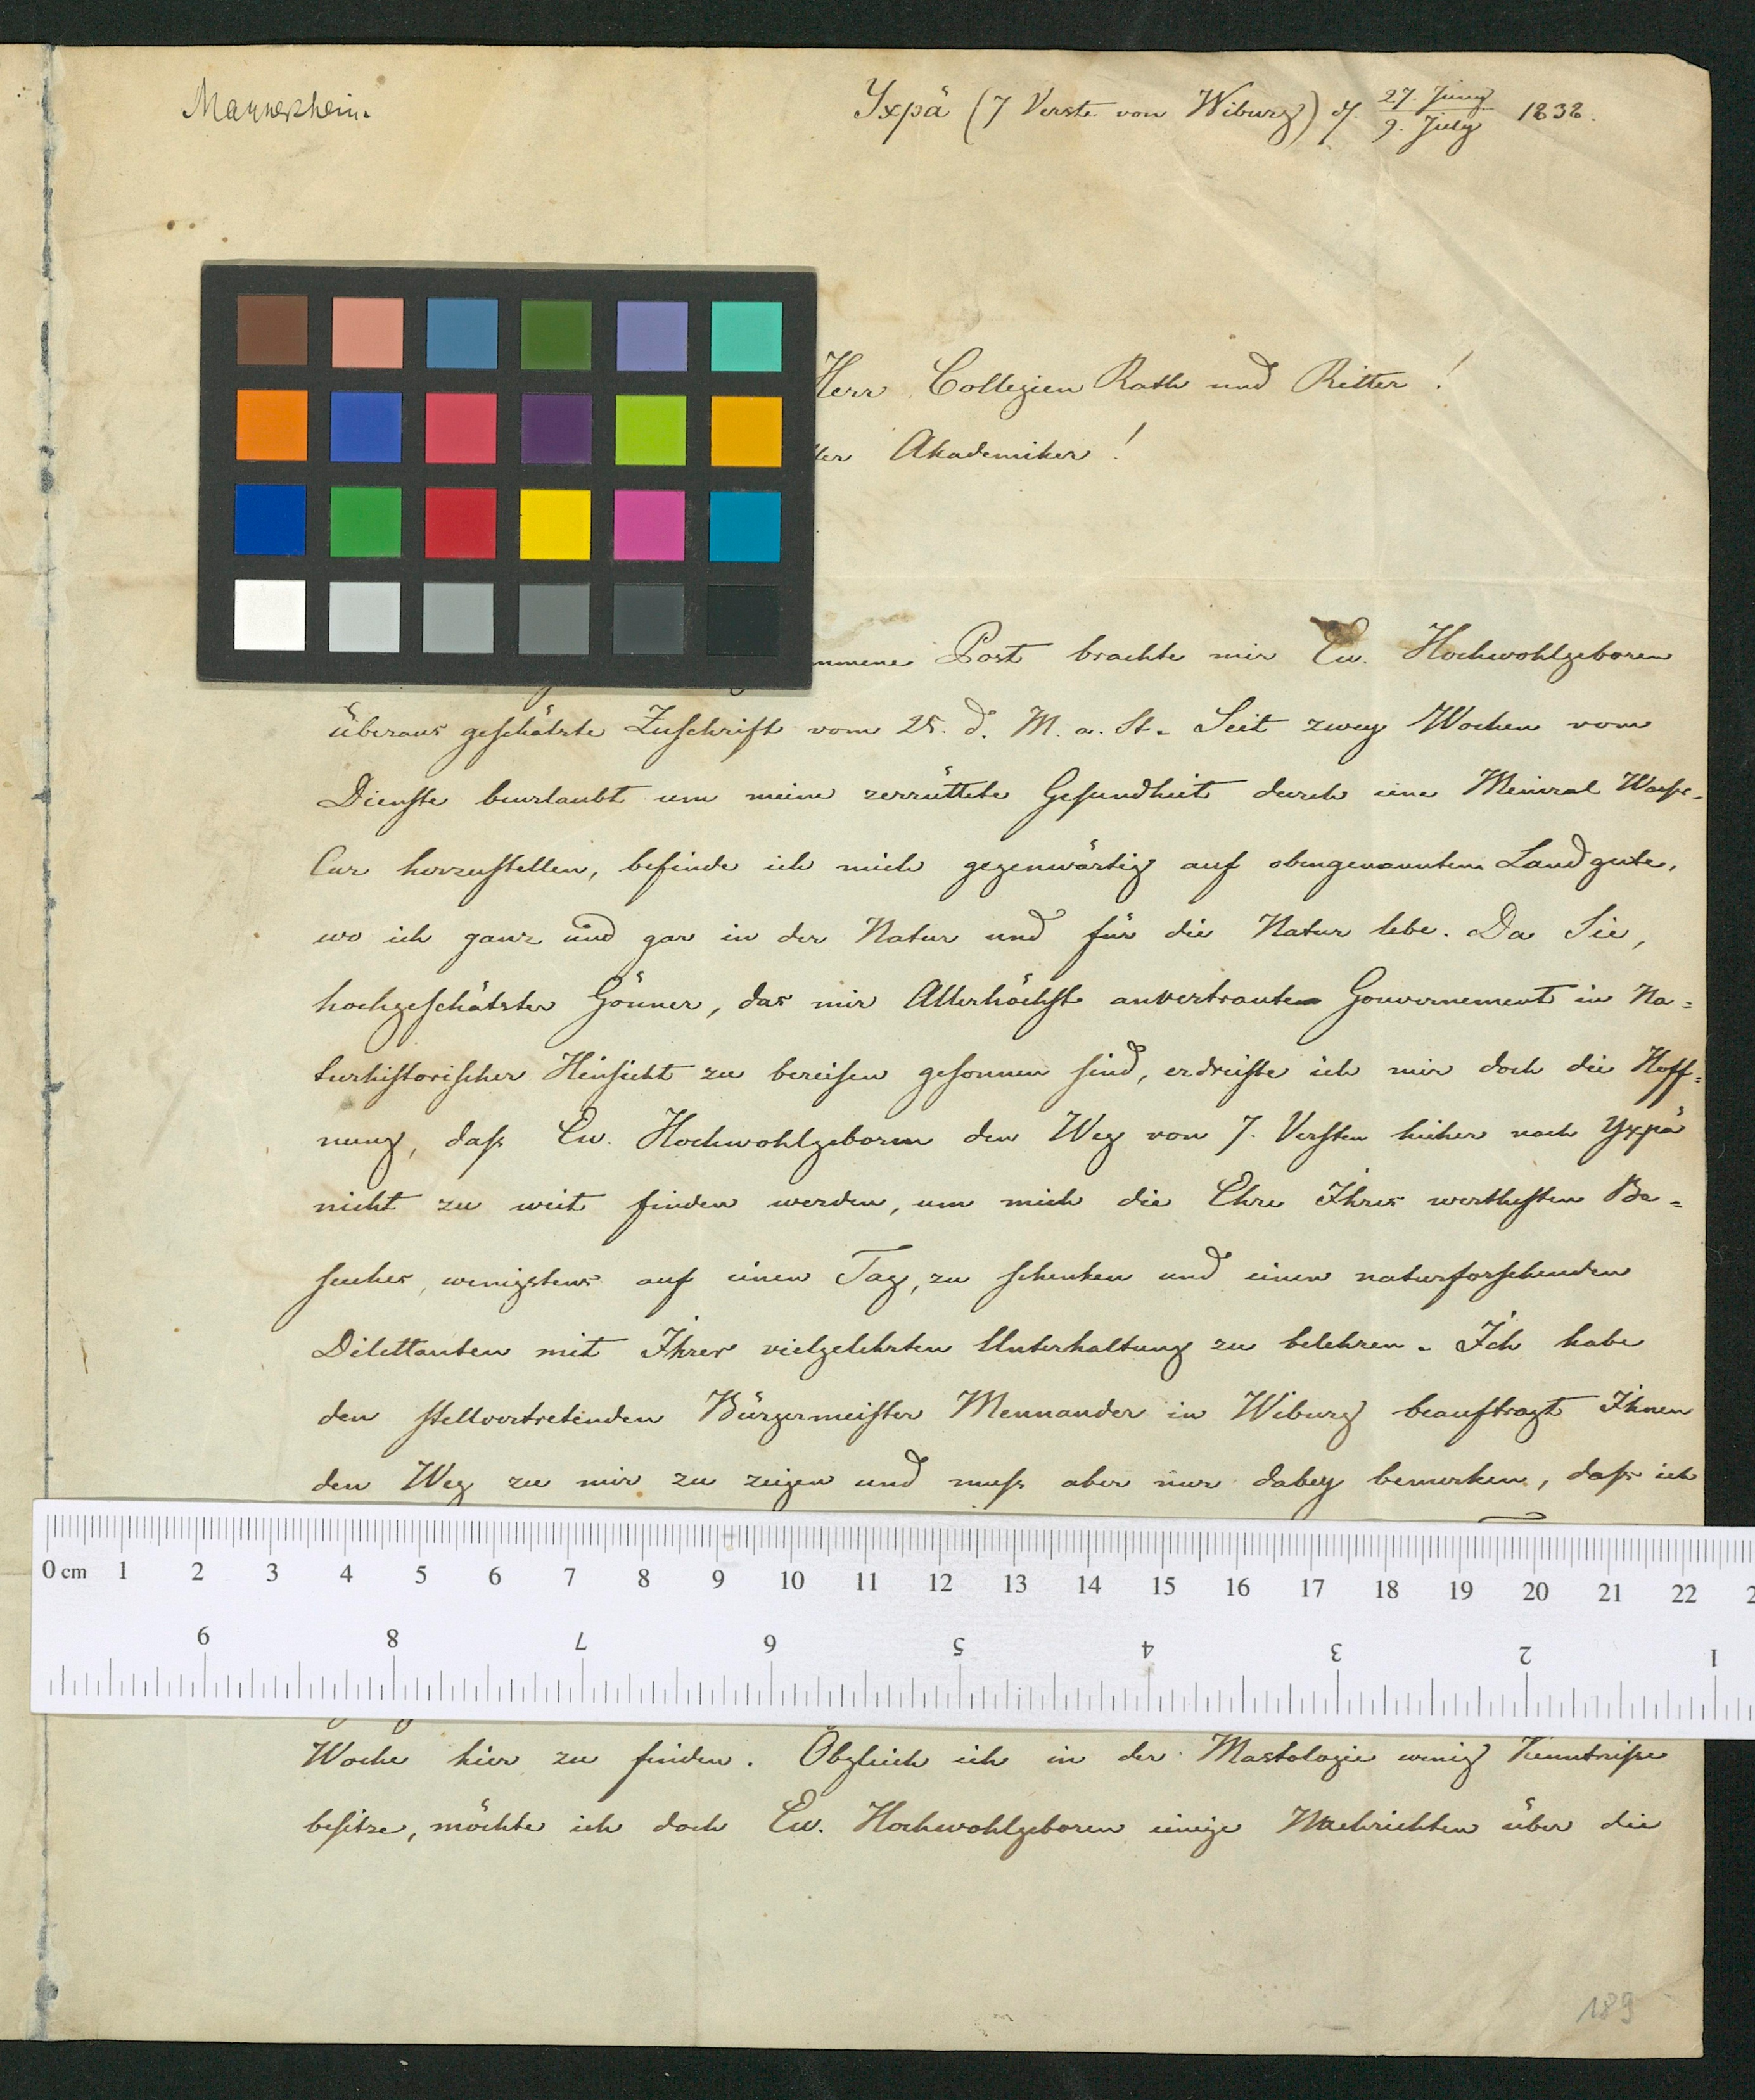 Mannerheim.
Yxpä (7 Verste von Wiburg) d. 27. Juny / 9. July 1838.
Herr Collegien Rath und Ritter!
ter Akademiker!
mmene Post brachte mir Ew. Hochwohlgeboren
überaus geschätzte Zuschrift vom 25. d. M. a. St. Seit zwey Wochen vom
Dienste beurlaubt um meine zerrüttete Gesundheit durch eine Mineral Wasser-
Cur herzustellen, befinde ich mich gegenwärtig auf obengenanntem Landgute,
wo ich ganz und gar in der Natur und für die Natur lebe. Da Sie,
hochgeschätzter Gönner, das mir Allerhöchst anvertraute Gouvernement in Na=
turhistorischer Hinsicht zu bereisen gesonnen sind, erdreiste ich mir doch die Hoff=
nung, daß Ew. Hochwohlgeboren den Weg von 7. Versten hieher nach Yxpä
nicht zu weit finden werden, um mich die Ehre Ihres werthesten Be=
suches, wenigstens auf einen Tag, zu schenken und einen naturforschenden
Dilettanten mit Ihrer vielgelehrten Unterhaltung zu belehren. Ich habe
den stellvertretenden Bürgermeister Mennander in Wiburg beauftragt Ihnen
den Weg zu mir zu zeigen und muß aber nur dabey bemerken, daß ich
0 cm 1 2 3 4 5 6 7 8 9 10 11 12 13 14 15 16 17 18 19 20 21 22
9 8 7 6 5 4 3 2 1
Woche hier zu finden. Obgleich ich in der Mastologie wenig Kenntniße
besitze, möchte ich doch Ew. Hochwohlgeboren einige Nachrichten über die
189